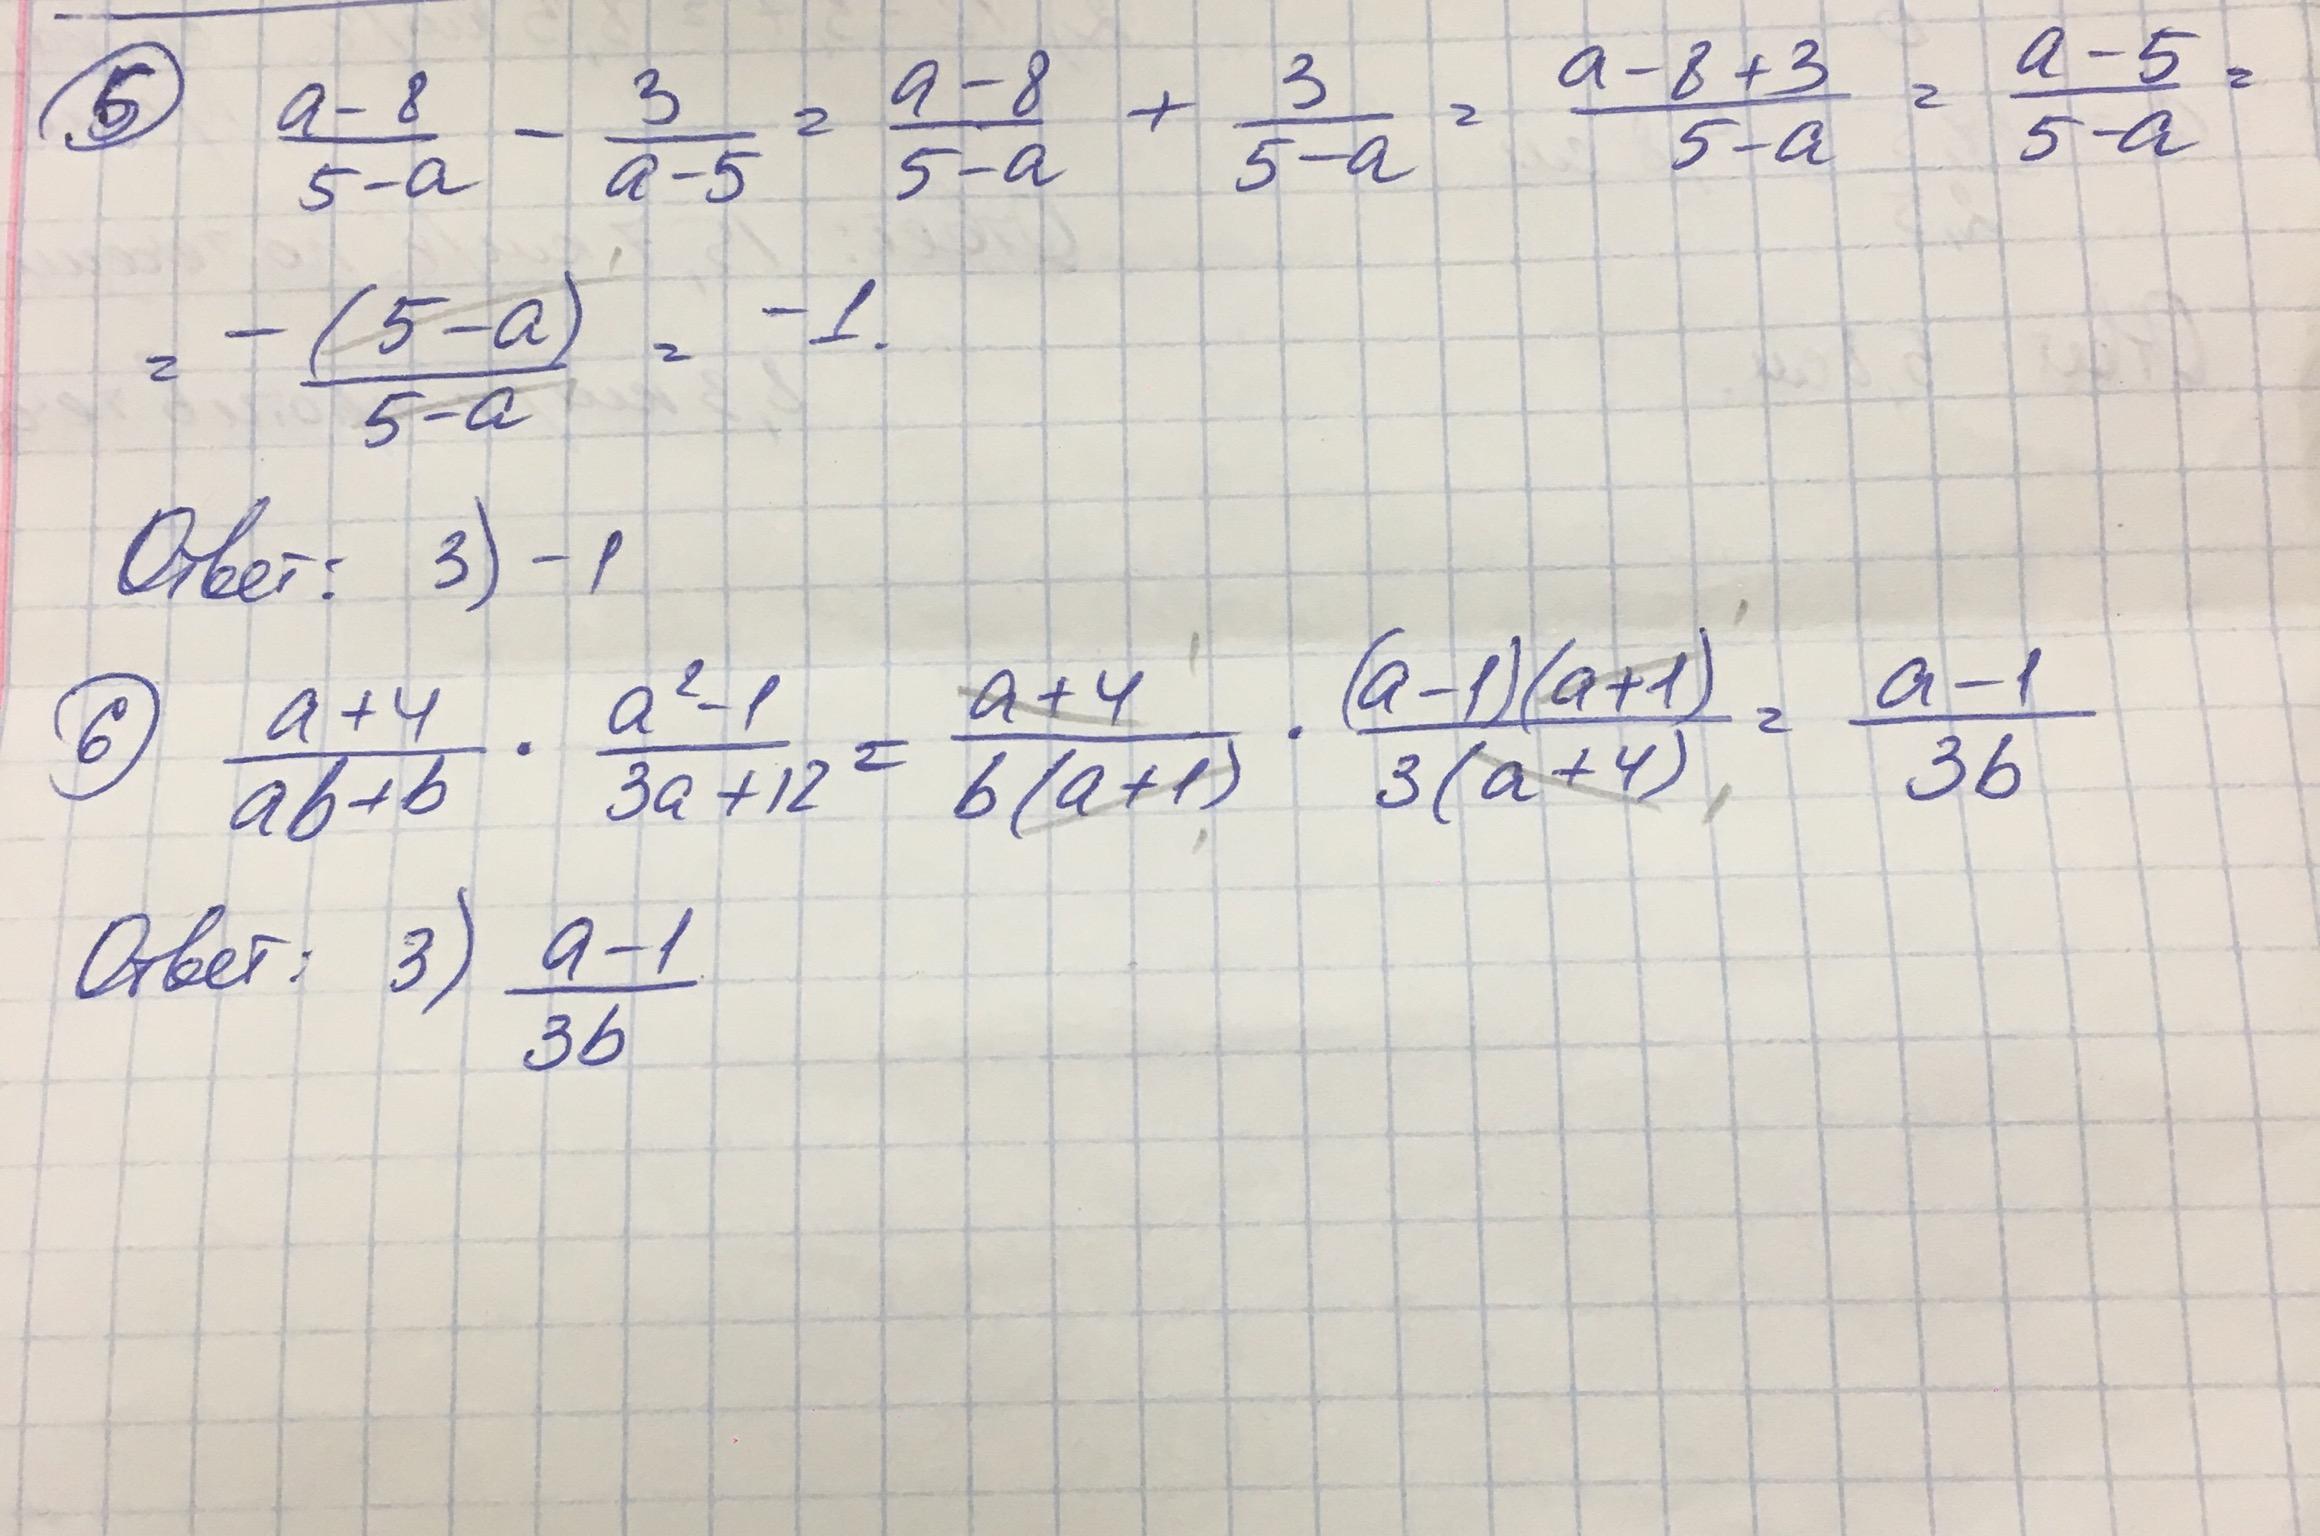 5 (a-8)/(5-a) - 3/(a-5) = (a-8)/(5-a) + 3/(5-a) = (a-8+3)/(5-a) = (a-5)/(5-a) =
= -(5-a)/(5-a) = -1.
Ответ: 3) -1
6 (a+4)/(ab+b) · (a²-1)/(3a+12) = (a+4)/(b(a+1)) · ((a-1)(a+1))/(3(a+4)) = (a-1)/(3b)
Ответ: 3) (a-1)/(3b)